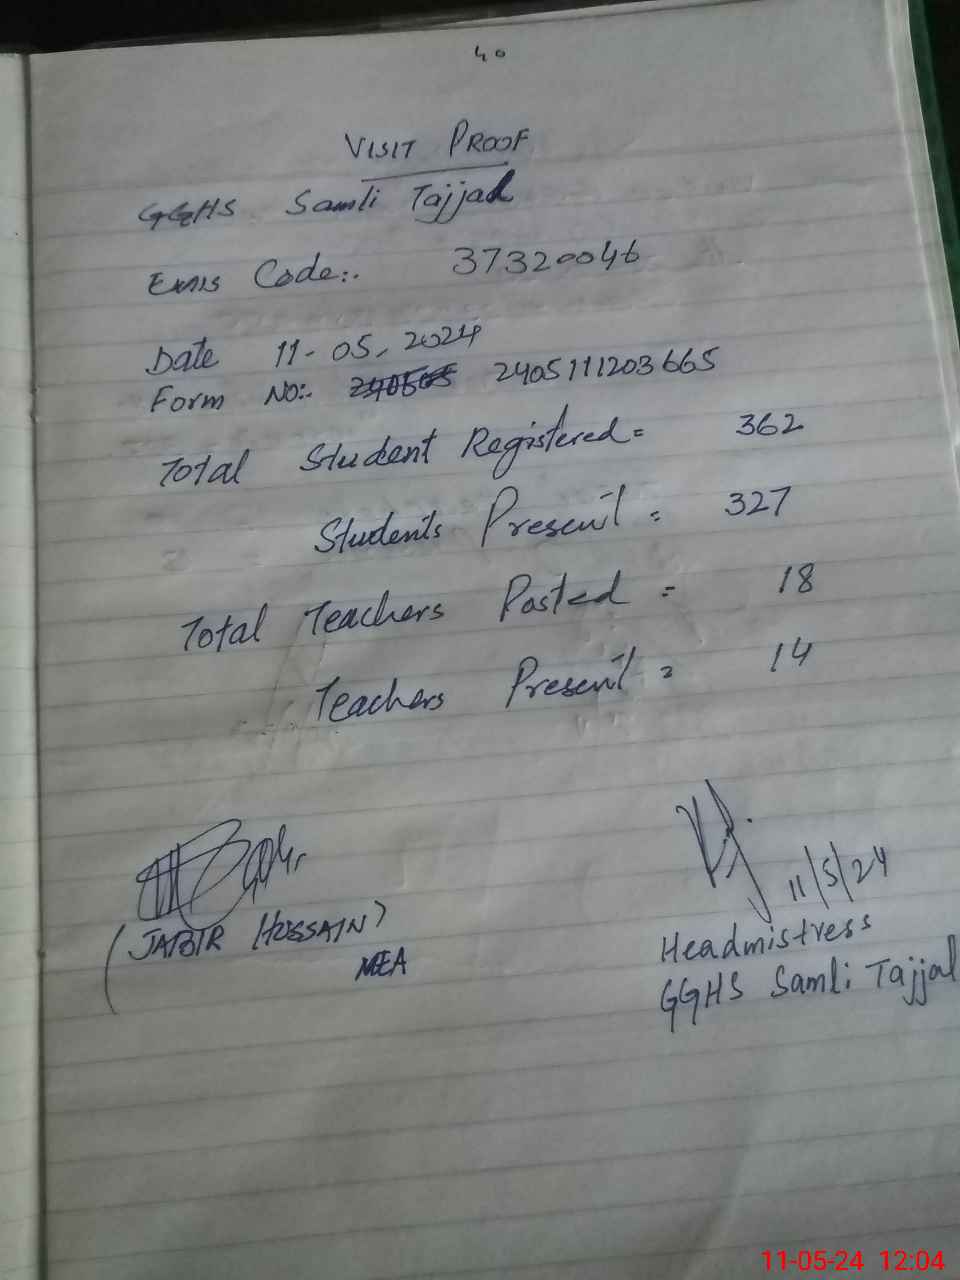 40
VISIT PROOF
GGHS Samli Tajjal
Emis Code:. 37320046
Date 11-05-2024
Form No:. 2405111203665
Total Student Registered = 362
Students Present = 327
Total Teachers Posted = 18
Teachers Present = 14
11/5/24
(JABIR HUSSAIN)
MEA
Headmistress
GGHS Samli Tajjal
11-05-24 12:04